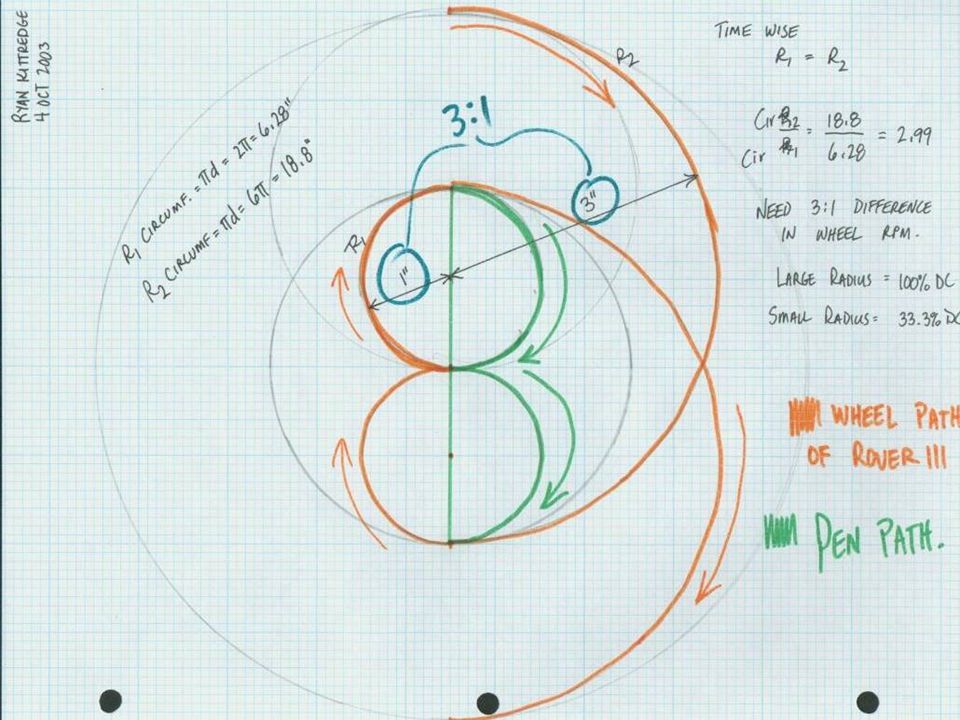 RYAN KITTREDGE
4 OCT 2003
R1 CIRCUMF. = πd = 2π = 6.28"
R2 CIRCUMF = πd = 6π = 18.8"
3:1
R1
1"
3"
R2
TIME WISE
R1 = R2
Cir R2 / Cir R1 = 18.8 / 6.28 = 2.99
NEED 3:1 DIFFERENCE
IN WHEEL RPM.
LARGE RADIUS = 100% DC
SMALL RADIUS = 33.3% DC
WHEEL PATH
OF ROVER III
PEN PATH.